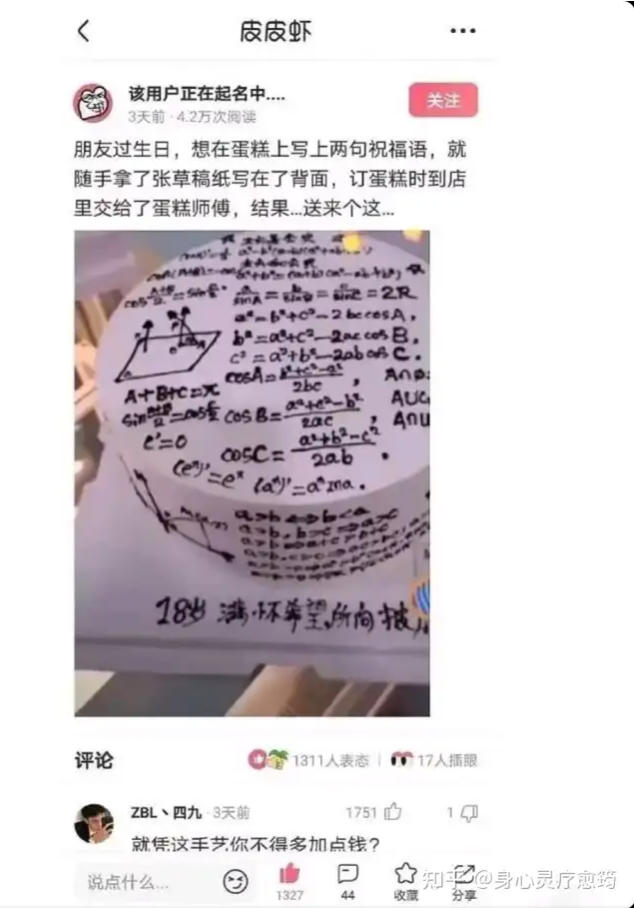 皮皮虾
该用户正在起名中....
3天前 · 4.2万次阅读
关注
朋友过生日，想在蛋糕上写上两句祝福语，就
随手拿了张草稿纸写在了背面，订蛋糕时到店
里交给了蛋糕师傅，结果...送来个这...
a/sinA = b/sinB = c/sinC = 2R
a²=b²+c²-2bccosA,
b²=a²+c²-2accosB,
c²=a²+b²-2abcosC.
cosA=b²+c²-a²/2bc,
A+B+C=π
cosB=a²+c²-b²/2ac,
C'=0
cosC=a²+b²-c²/2ab.
(eˣ)'=eˣ (aˣ)'=aˣlna.
a>b⇔b<a
18岁 满怀希望,所向披
评论
1311人表态
17人插眼
ZBL丶四九 · 3天前
1751
1
就凭这手艺你不得多加点钱?
说点什么...
1327
44
收藏
分享
知乎 @身心灵疗愈筠